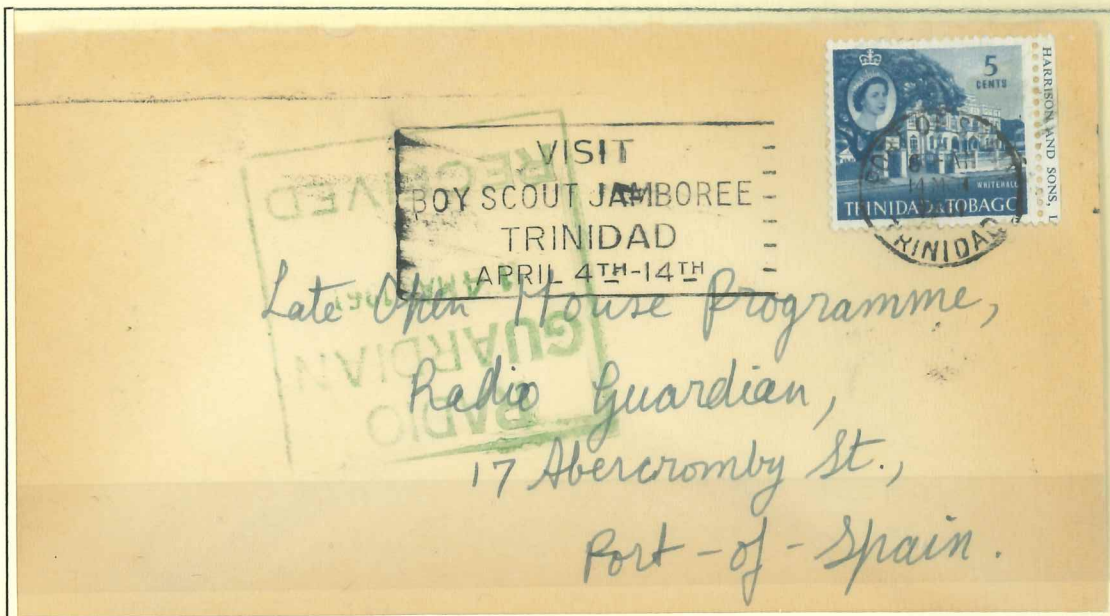 5
CENTS
WHITEHALL
TRINIDAD & TOBAGO
HARRISON AND SONS, L
TRINIDAD
VISIT
BOY SCOUT JAMBOREE
TRINIDAD
APRIL 4TH-14TH
RADIO
GUARDIAN
RECEIVED
Late Open House Programme,
Radio Guardian,
17 Abercromby St.,
Port-of-Spain.